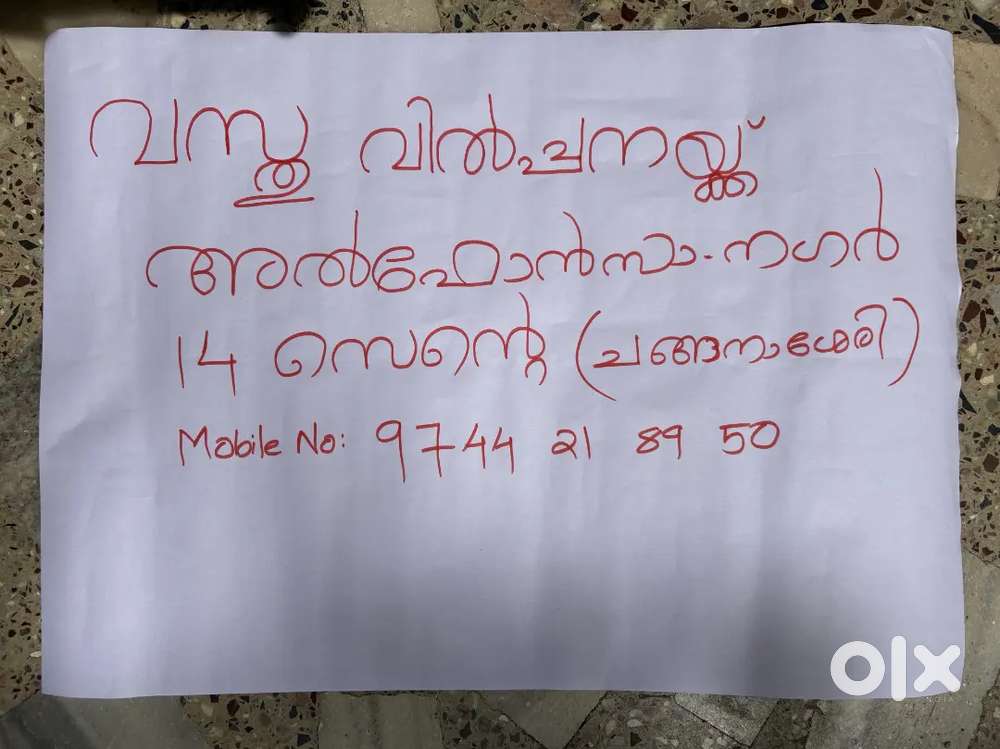 വസ്തു വിൽപ്പനയ്ക്ക്
അൽഫോൻസാ-നഗർ
14 സെന്റ് (ചങ്ങനാശേരി)
Mobile No: 9744 21 89 50
olx